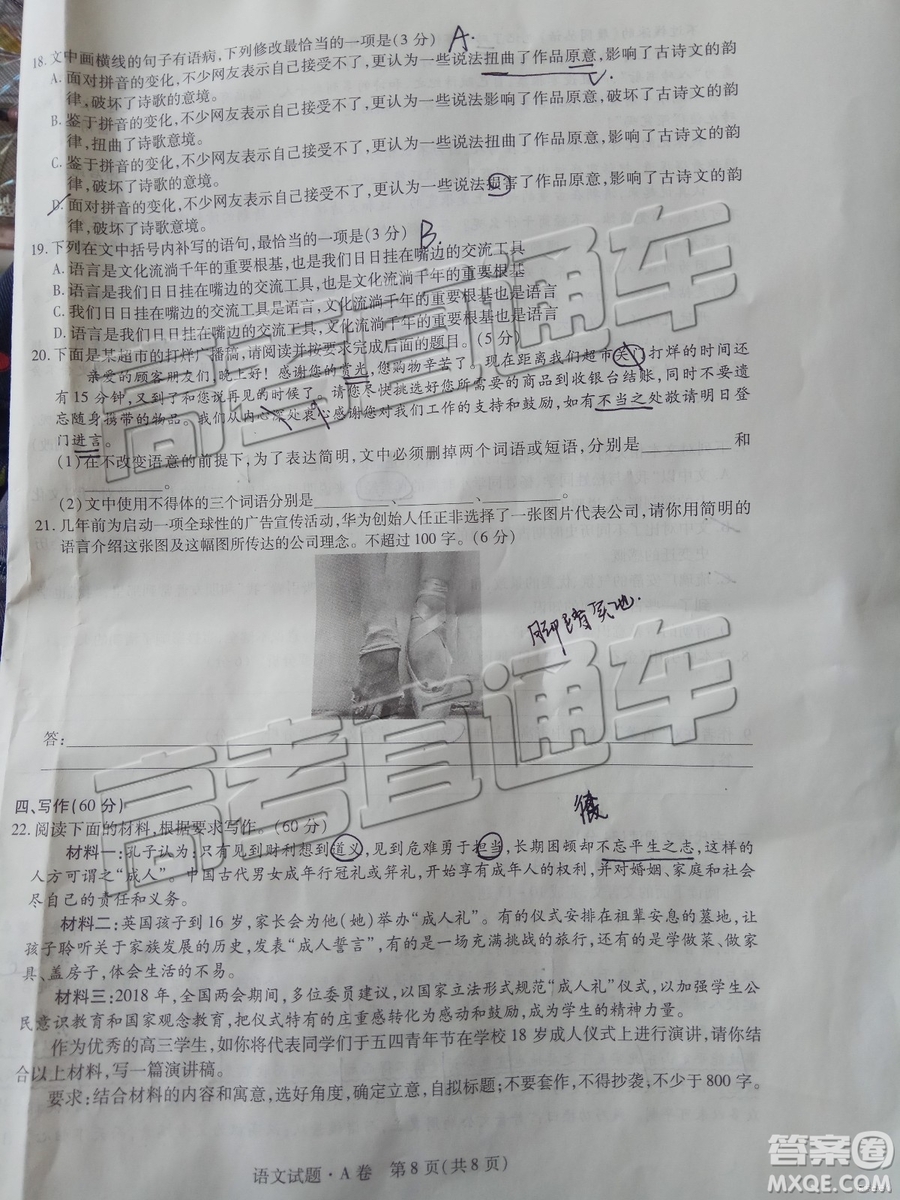 18.文中画横线的句子有语病,下列修改最恰当的一项是(3分) A.
A.面对拼音的变化,不少网友表示自己接受不了,更认为一些说法扭曲了作品原意,影响了古诗文的韵
律,破坏了诗歌的意境。
B.鉴于拼音的变化,不少网友表示自己接受不了,更认为一些说法影响了作品原意,破坏了古诗文的韵
律,扭曲了诗歌意境。
C.鉴于拼音的变化,不少网友表示自己接受不了,更认为一些说法扭曲了作品原意,影响了古诗文的韵
律,破坏了诗歌的意境。
D.面对拼音的变化,不少网友表示自己接受不了,更认为一些说法损害了作品原意,影响了古诗文的韵
律,破坏了诗歌意境。
19.下列在文中括号内补写的语句,最恰当的一项是(3分) B.
A.语言是文化流淌千年的重要根基,也是我们日日挂在嘴边的交流工具
B.语言是我们日日挂在嘴边的交流工具,也是文化流淌千年的重要根基
C.我们日日挂在嘴边的交流工具是语言,文化流淌千年的重要根基也是语言
D.语言是我们日日挂在嘴边的交流工具,文化流淌千年的重要根基也是语言
20.下面是某超市的打烊广播稿,请阅读并按要求完成后面的题目。(5分)
亲爱的顾客朋友们,晚上好!感谢您的赏光,您购物辛苦了。现在距离我们超市关门打烊的时间还
有15分钟,又到了和您说再见的时候了。请您尽快挑选好需要的商品到收银台结账,同时不要遗
忘随身携带的物品。我们从内心深处衷心感谢您对我们工作的支持和鼓励,如有不当之处敬请明日登
门进言。
(1)在不改变语意的前提下,为了表达简明,文中必须删掉两个词语或短语,分别是__________和
__________。
(2)文中使用不得体的三个词语分别是________、________、________。
21.几年前为启动一项全球性的广告宣传活动,华为创始人任正非选择了一张图片代表公司,请你用简明的
语言介绍这张图及这幅图所传达的公司理念。不超过100字。(6分)
脚踏实地.
答:
四、写作(60分)
22.阅读下面的材料,根据要求写作。(60分)
材料一:孔子认为:只有见到财利想到道义,见到危难勇于担当,长期困顿却不忘平生之志,这样的
人方可谓之“成人”。中国古代男女成年行冠礼或笄礼,开始享有成年人的权利,并对婚姻、家庭和社会
尽自己的责任和义务。
材料二:英国孩子到16岁,家长会为他(她)举办“成人礼”。有的仪式安排在祖辈安息的墓地,让
孩子聆听关于家族发展的历史,发表“成人誓言”,有的是一场充满挑战的旅行,还有的是学做菜、做家
具、盖房子,体会生活的不易。
材料三:2018年,全国两会期间,多位委员建议,以国家立法形式规范“成人礼”仪式,以加强学生公
民意识教育和国家观念教育,把仪式特有的庄重感转化为感动和鼓励,成为学生的精神力量。
作为优秀的高三学生,如你将代表同学们于五四青年节在学校18岁成人仪式上进行演讲,请你结
合以上材料,写一篇演讲稿。
要求:结合材料的内容和寓意,选好角度,确定立意,自拟标题;不要套作,不得抄袭,不少于800字。
语文试题·A卷 第8页(共8页)
高考直通车
高考直通车
答案圈
MXQE.COM